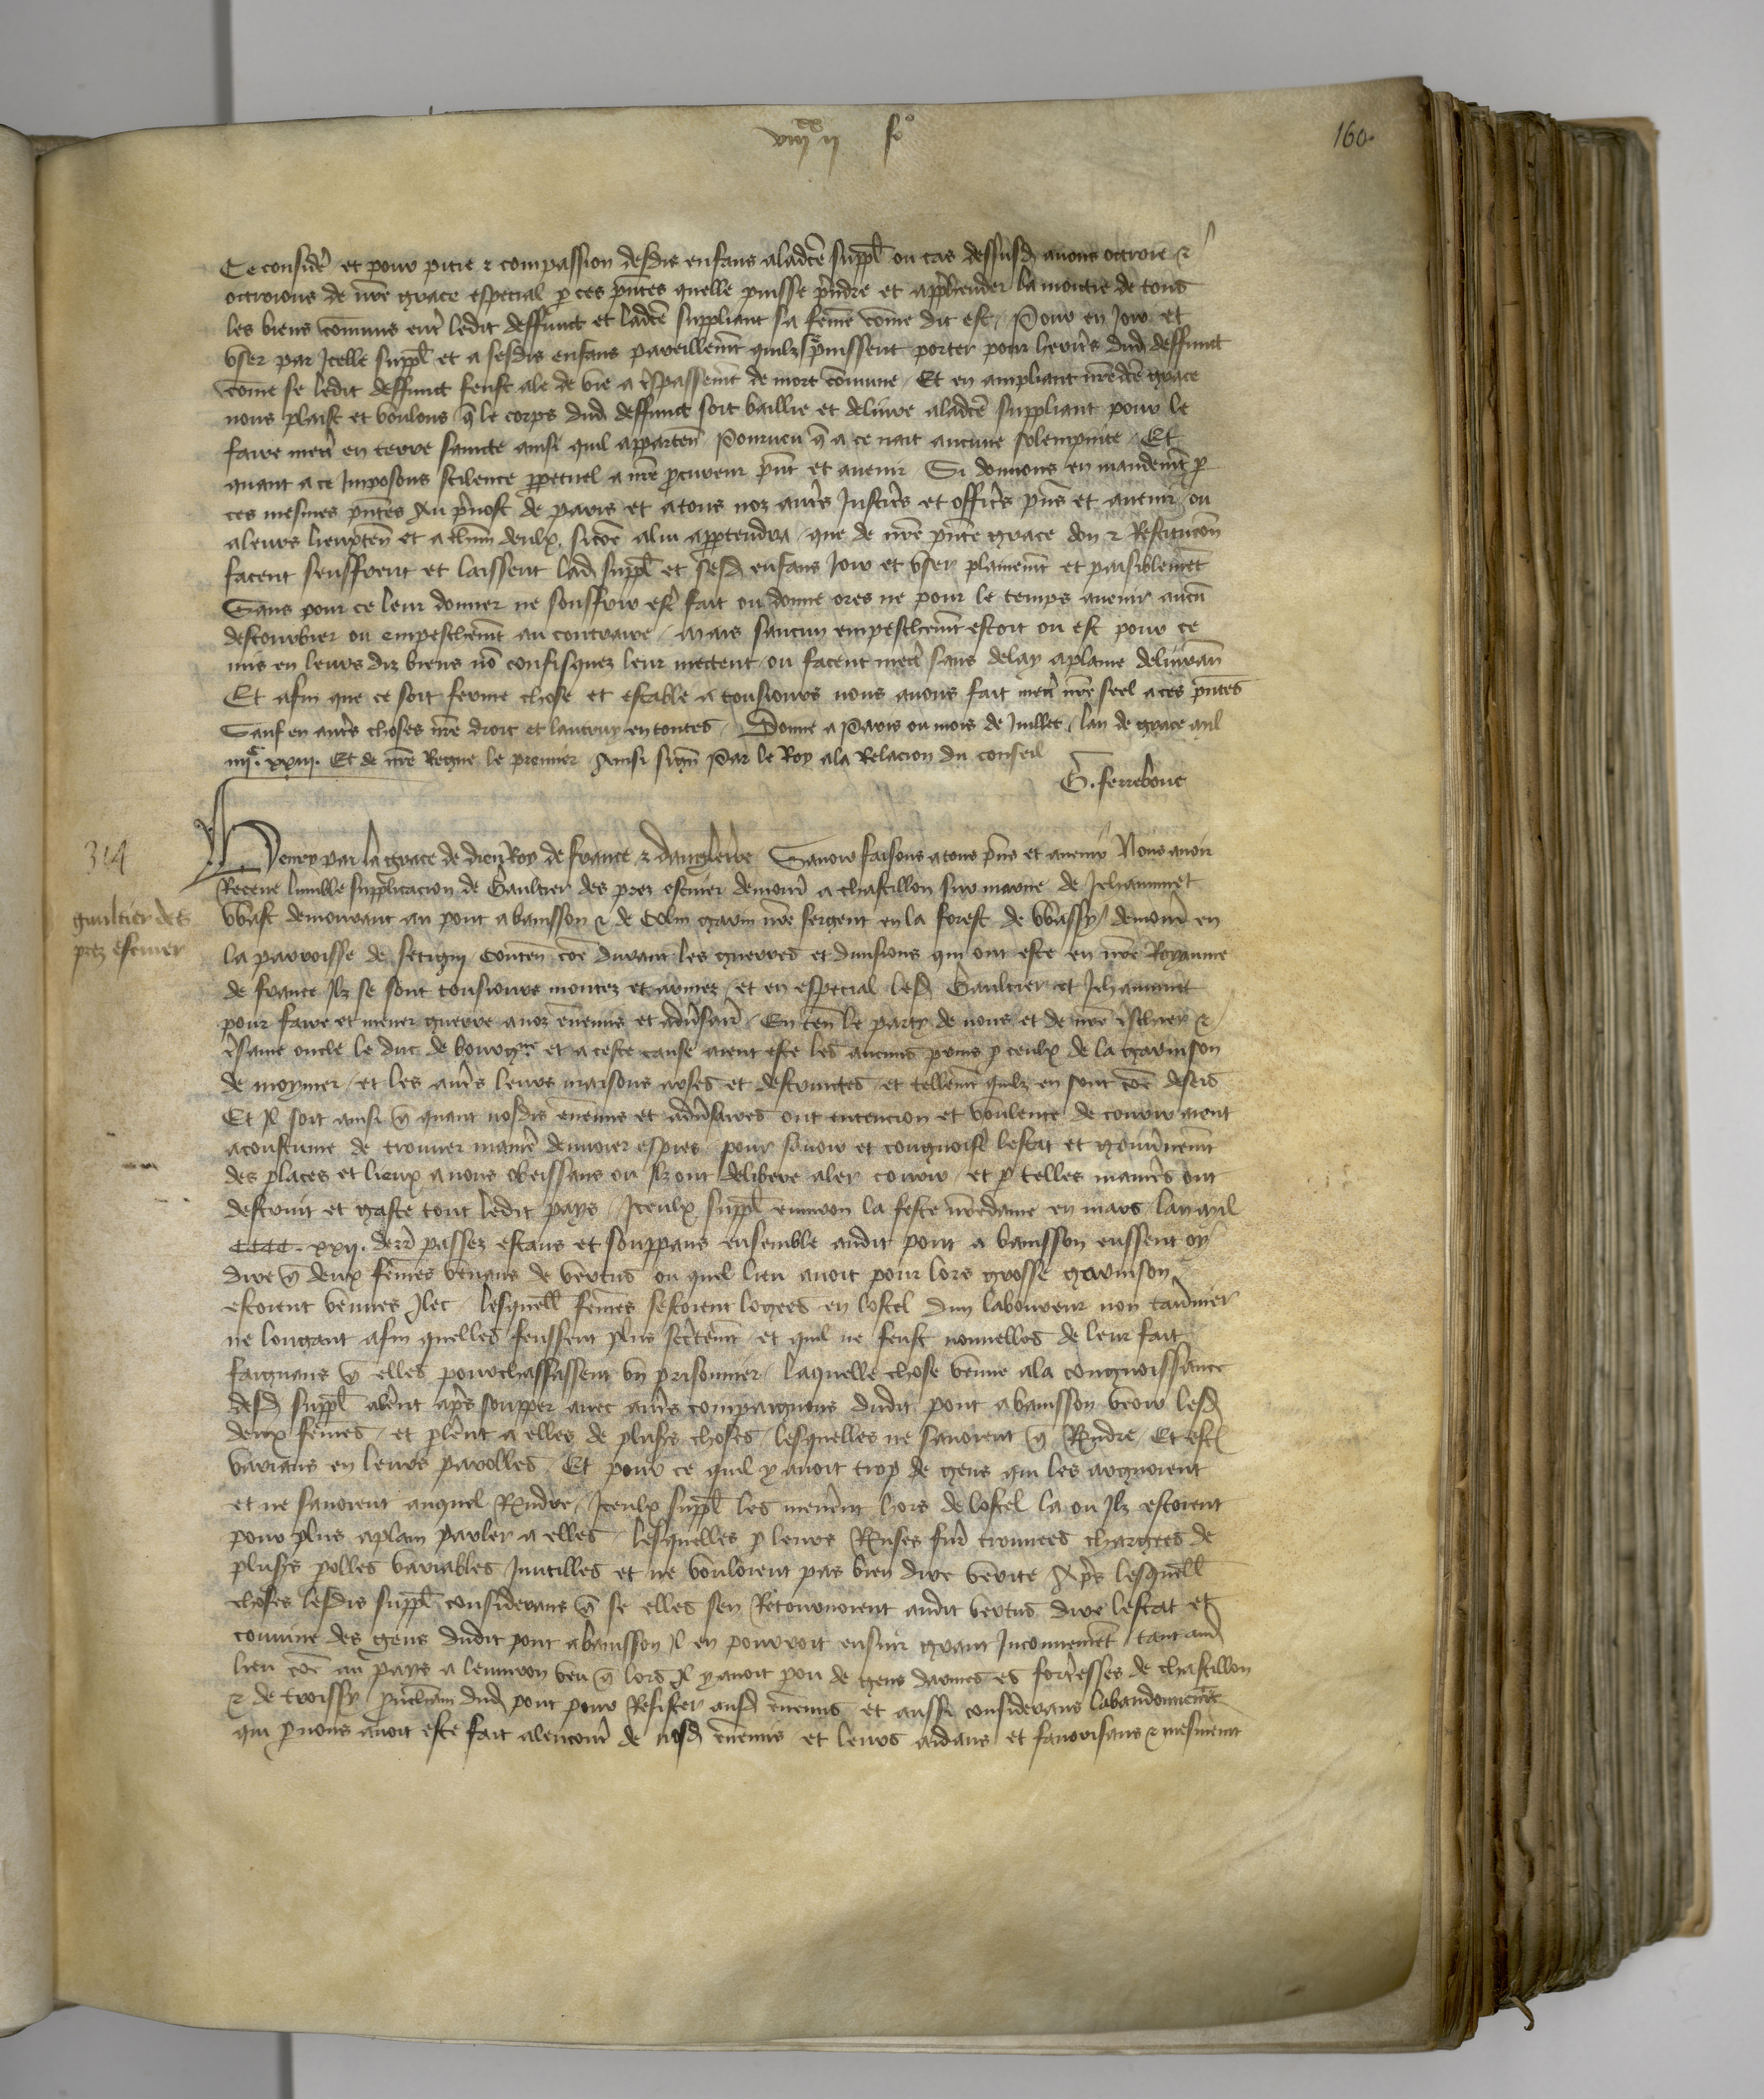 viii xx ii fo
160.
Ce considere et pour pitie & compassion desdis enfans a ladce suppl ou cas dessusd avons octroie &
octroions de nre grace especial p ces pntes quelle puisse prndre et apprehender la moitie de tous
les biens comuns entre ledit deffunct et ladce suppliant sa feme come dit est / Pour en Joir et
user par Icelle suppl et a sesdis enfans pareillemt quilz puissent porter pour heritrs dud deffunct
come se ledit deffunct feust ale de vie a trspassemt de mort comune / Et en ampliant nredce grace
nous plaist et voulons q le corps dud deffunct soit baillie et delivre a ladce suppliant pour le
faire mectre en terre saincte ainsi quil apparten Pourveu q a ce nait aucune solempnite / Et
quant a ce Imposons scilence ppetuel a nre procureur pnt et avenir Si donnons en mandemt p
ces mesmes pntes Au prevost de paris et a tous noz autrs Justicrs et officrs pns et avenir ou
a leurs lieuxten et a chun deulx si coe a lui appartendra / que de nre pnte grace don & Restitucon
facent seuffrent et laissent lad suppl et sesd enfans Joir et user plainemt et paisiblemet
Sans pour ce leur donner ne souffrir estre fait ou donne ores ne pour le temps avenir aucun
destourbier ou empeschemt au contraire / Mais saucun empeschemt estoit ou est pour ce
mis en leurs diz biens no confisquez leur mectent ou facent mectre sans delay a plaine delivran
Et afin que ce soit ferme chose et estable a tousiours nous avons fait mectre nre seel a ces pntes
Sauf en autrs choses nre droit et lautruy en toutes / Donne a Paris ou mois de Juillet / lan de grace mil
iiii c. xxiii. Et de nre Regne le premier Ainsi sign Par le Roy a la Relacion du conseil
G. ferrebouc
314
gaultier des
prez escuier
Henry par la grace de dieu Roy de france & dangleterre Savoir faisons a tous pns et avenir Nous avoir
Receue lumble supplicacion de Gaultier des prez escuier demour a chastillon sur marne de Jehanninet
demourant au pont a bainsson & de Colin garin nre sergent en la forest de demour en
la parroisse de conten coe durant les guerres et divisions qui ont este en nre Royaume
de france Ilz se sont tousiours montez et armez / et en especial lesd Gaultier et Jehanninet
pour faire et mener guerre a noz ennemis et adversairs / En ten le party de nous et de nre trscher &
trsame oncle le duc de bourgne et a ceste cause aient este les aucuns prins p ceulx de la garnison
de moymer / et les autrs leurs maisons arses et destruictes / et tellemt quilz en sont coe desers
Et Il soit ainsi q quant nosdis ennemis et adversaires ont entencion et voulente de courir aient
acoustume de trouver manre denvoier espies pour savoir et congnoistre lestat et gouvernemt
des places et lieux a nous obeissans ou Ilz ont delibere aler courir / et p telles manrs ont
destruit et gaste tout ledit pays / Iceulx suppl environ la feste nredame en mars lan mil
CCCC. xxii. derr passez estans et souppans ensemble audit pont a bainsson eussent oy
dire q deux femes venans de vertus ou quel lieu avoit pour lors grosse garnison
estoient venues Ilec / lesquell femes sestoient logees en lostel dun laboureur non tavernier
ne logant afin quelles feussent plus secretemt / et quil ne feust nouvelles de leur fait
faignans q elles pourchassassent un prisonnier / laquelle chose venue a la congnoissance
desd suppl alernt aprs soupper avec autrs compaignons dudit pont a bainsson veoir lesd
deux femes / et plernt a elles de plusrs choses / lesquelles ne savoient q Rndre / Et estoient
varians en leurs parolles / Et pour ce quil y avoit trop de gens qui les arguoient
et ne savoient auquel Rndre / Iceulx suppl les menernt hors de lostel la ou Ilz estoient
pour plus a plain parler a elles / lesquelles p leurs Ruses furent trouvees chargees de
plusrs polles variables Inutilles et ne vouloient pas bien dire verite Aprs lesquell
choses lesdis suppl considerans q se elles sen Retournoient audit vertus dire lestat et
convine des gens dudit pont a bainsson Il en pourroit ensuir grant Inconvenient tant aud
lieu coe au pays a lenviron veu q lors Il y avoit pou de gens darmes es fortresses de chastillon
& de troissy prochain dud pont pour Resister ausd ennemis et aussi considerans labandonnemt
qui p nous avoit este fait alencontre de nosd ennemis et leurs aidans et favorisans & mesmemt